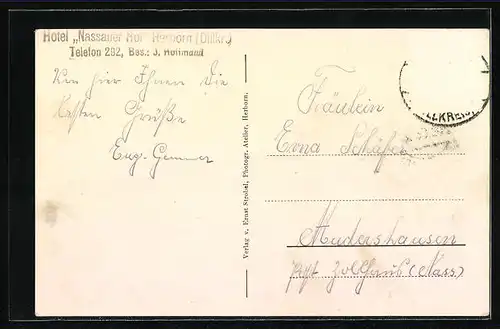 Hotel „Nassauer Hof" Herborn (Dillkr.)
Telefon 292, Bes.: J. Hoffmann
Von hier Ihnen die
besten Grüße
Eug.
Verlag v. Ernst Strobel, Photogr. Atelier, Herborn.
LLKREIS
Fräulein
Erna Schäfer
Mudershausen
Post Zollhaus (Nass)